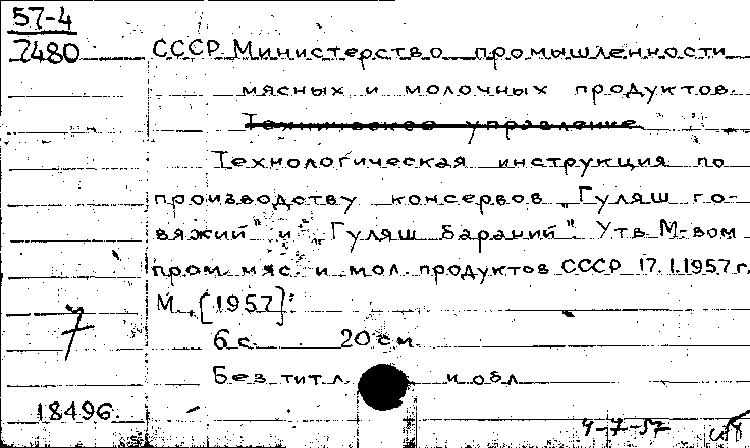 57-4
7480
СССР Министерство промышленности
мясных и молочных продуктов.
Техническое управление
Технологическая инструкция по
производству консервов „Гуляш го-
вяжий" и „Гуляш бараний". Утв М-вом
пром. мяс. и мол. продуктов СССР 17.1.1957 г.
М., [1957]:
6 с. 20 см.
Без тит л. и обл
7
18496.
4-7-57